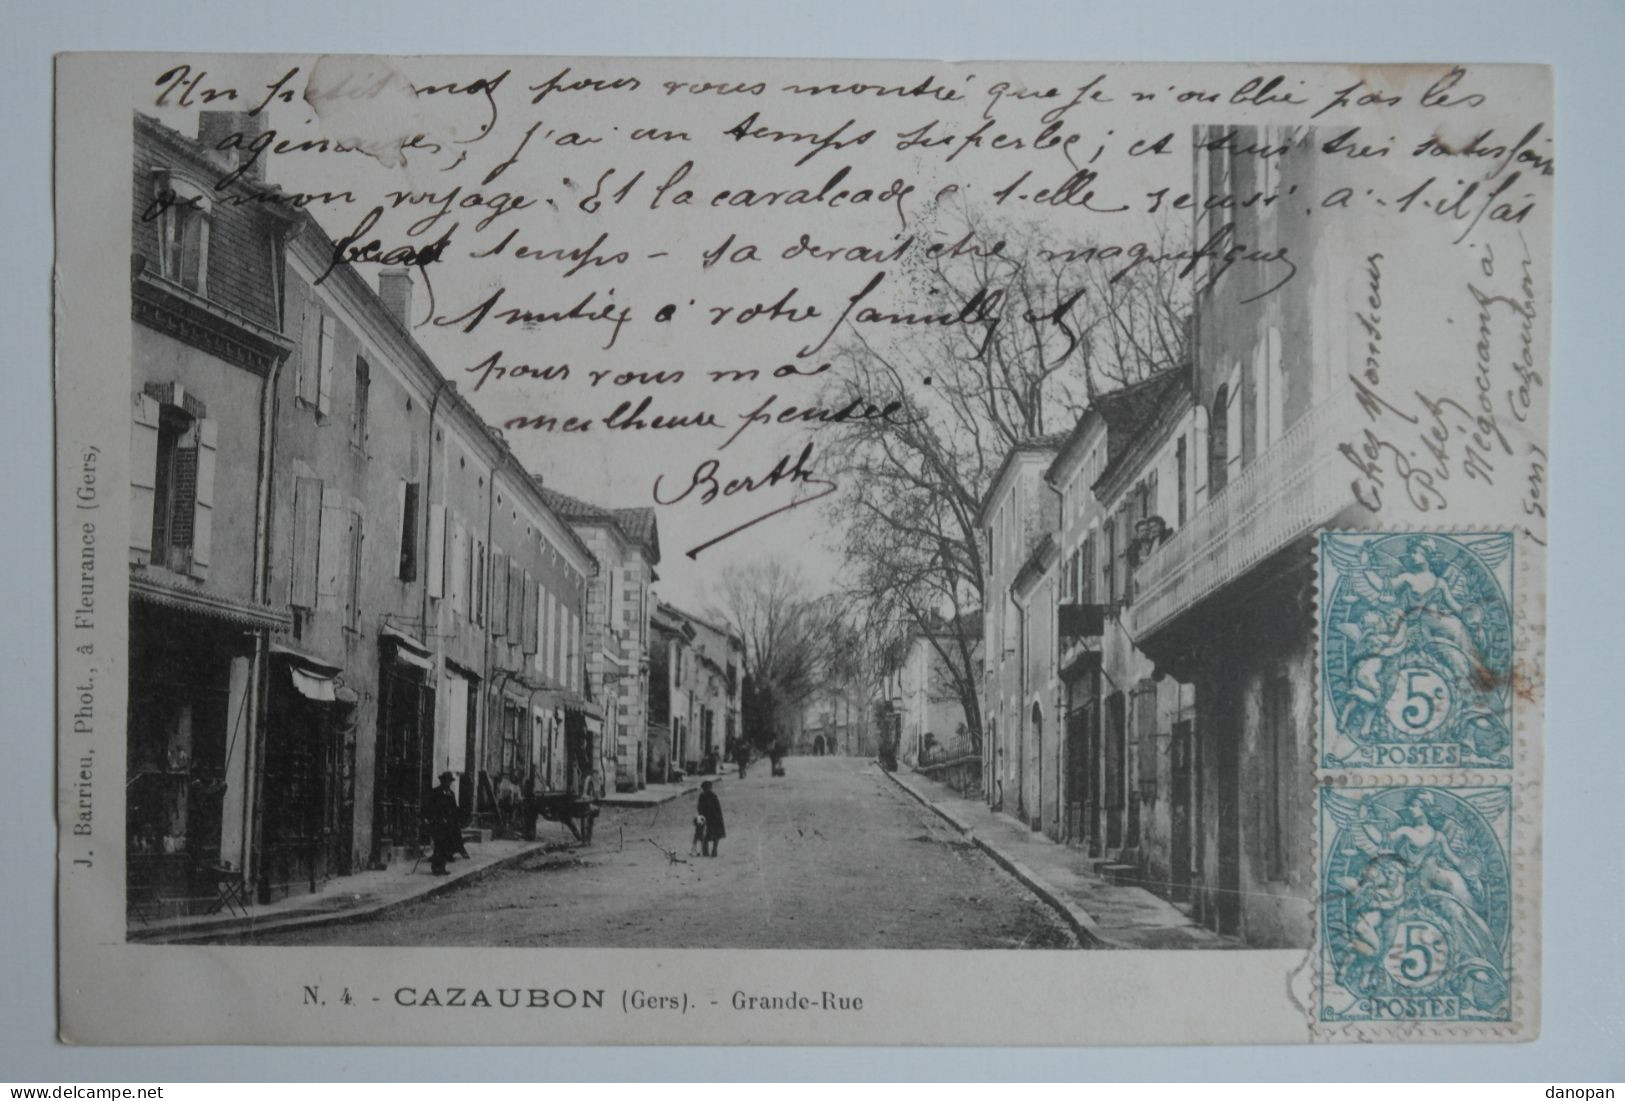 Un petit mot pour vous montré que je n'oublie pas les
agénaises, j'ai un temps superbe; et suis très satisfait
de mon voyage. Et la cavalcade a t-elle réussi. a-t-il fait
beau temps - sa devait être magnifique
Amitiés à votre famille et
pour vous ma
meilheure pensée
Berthe
Chez Monsieur
Négociant à
Cazaubon
Gers
RÉPUBLIQUE
5c
POSTES
5c
POSTES
J. Barrieu, Phot., à Fleurance (Gers)
N. 4 - CAZAUBON (Gers). - Grande-Rue
danopan